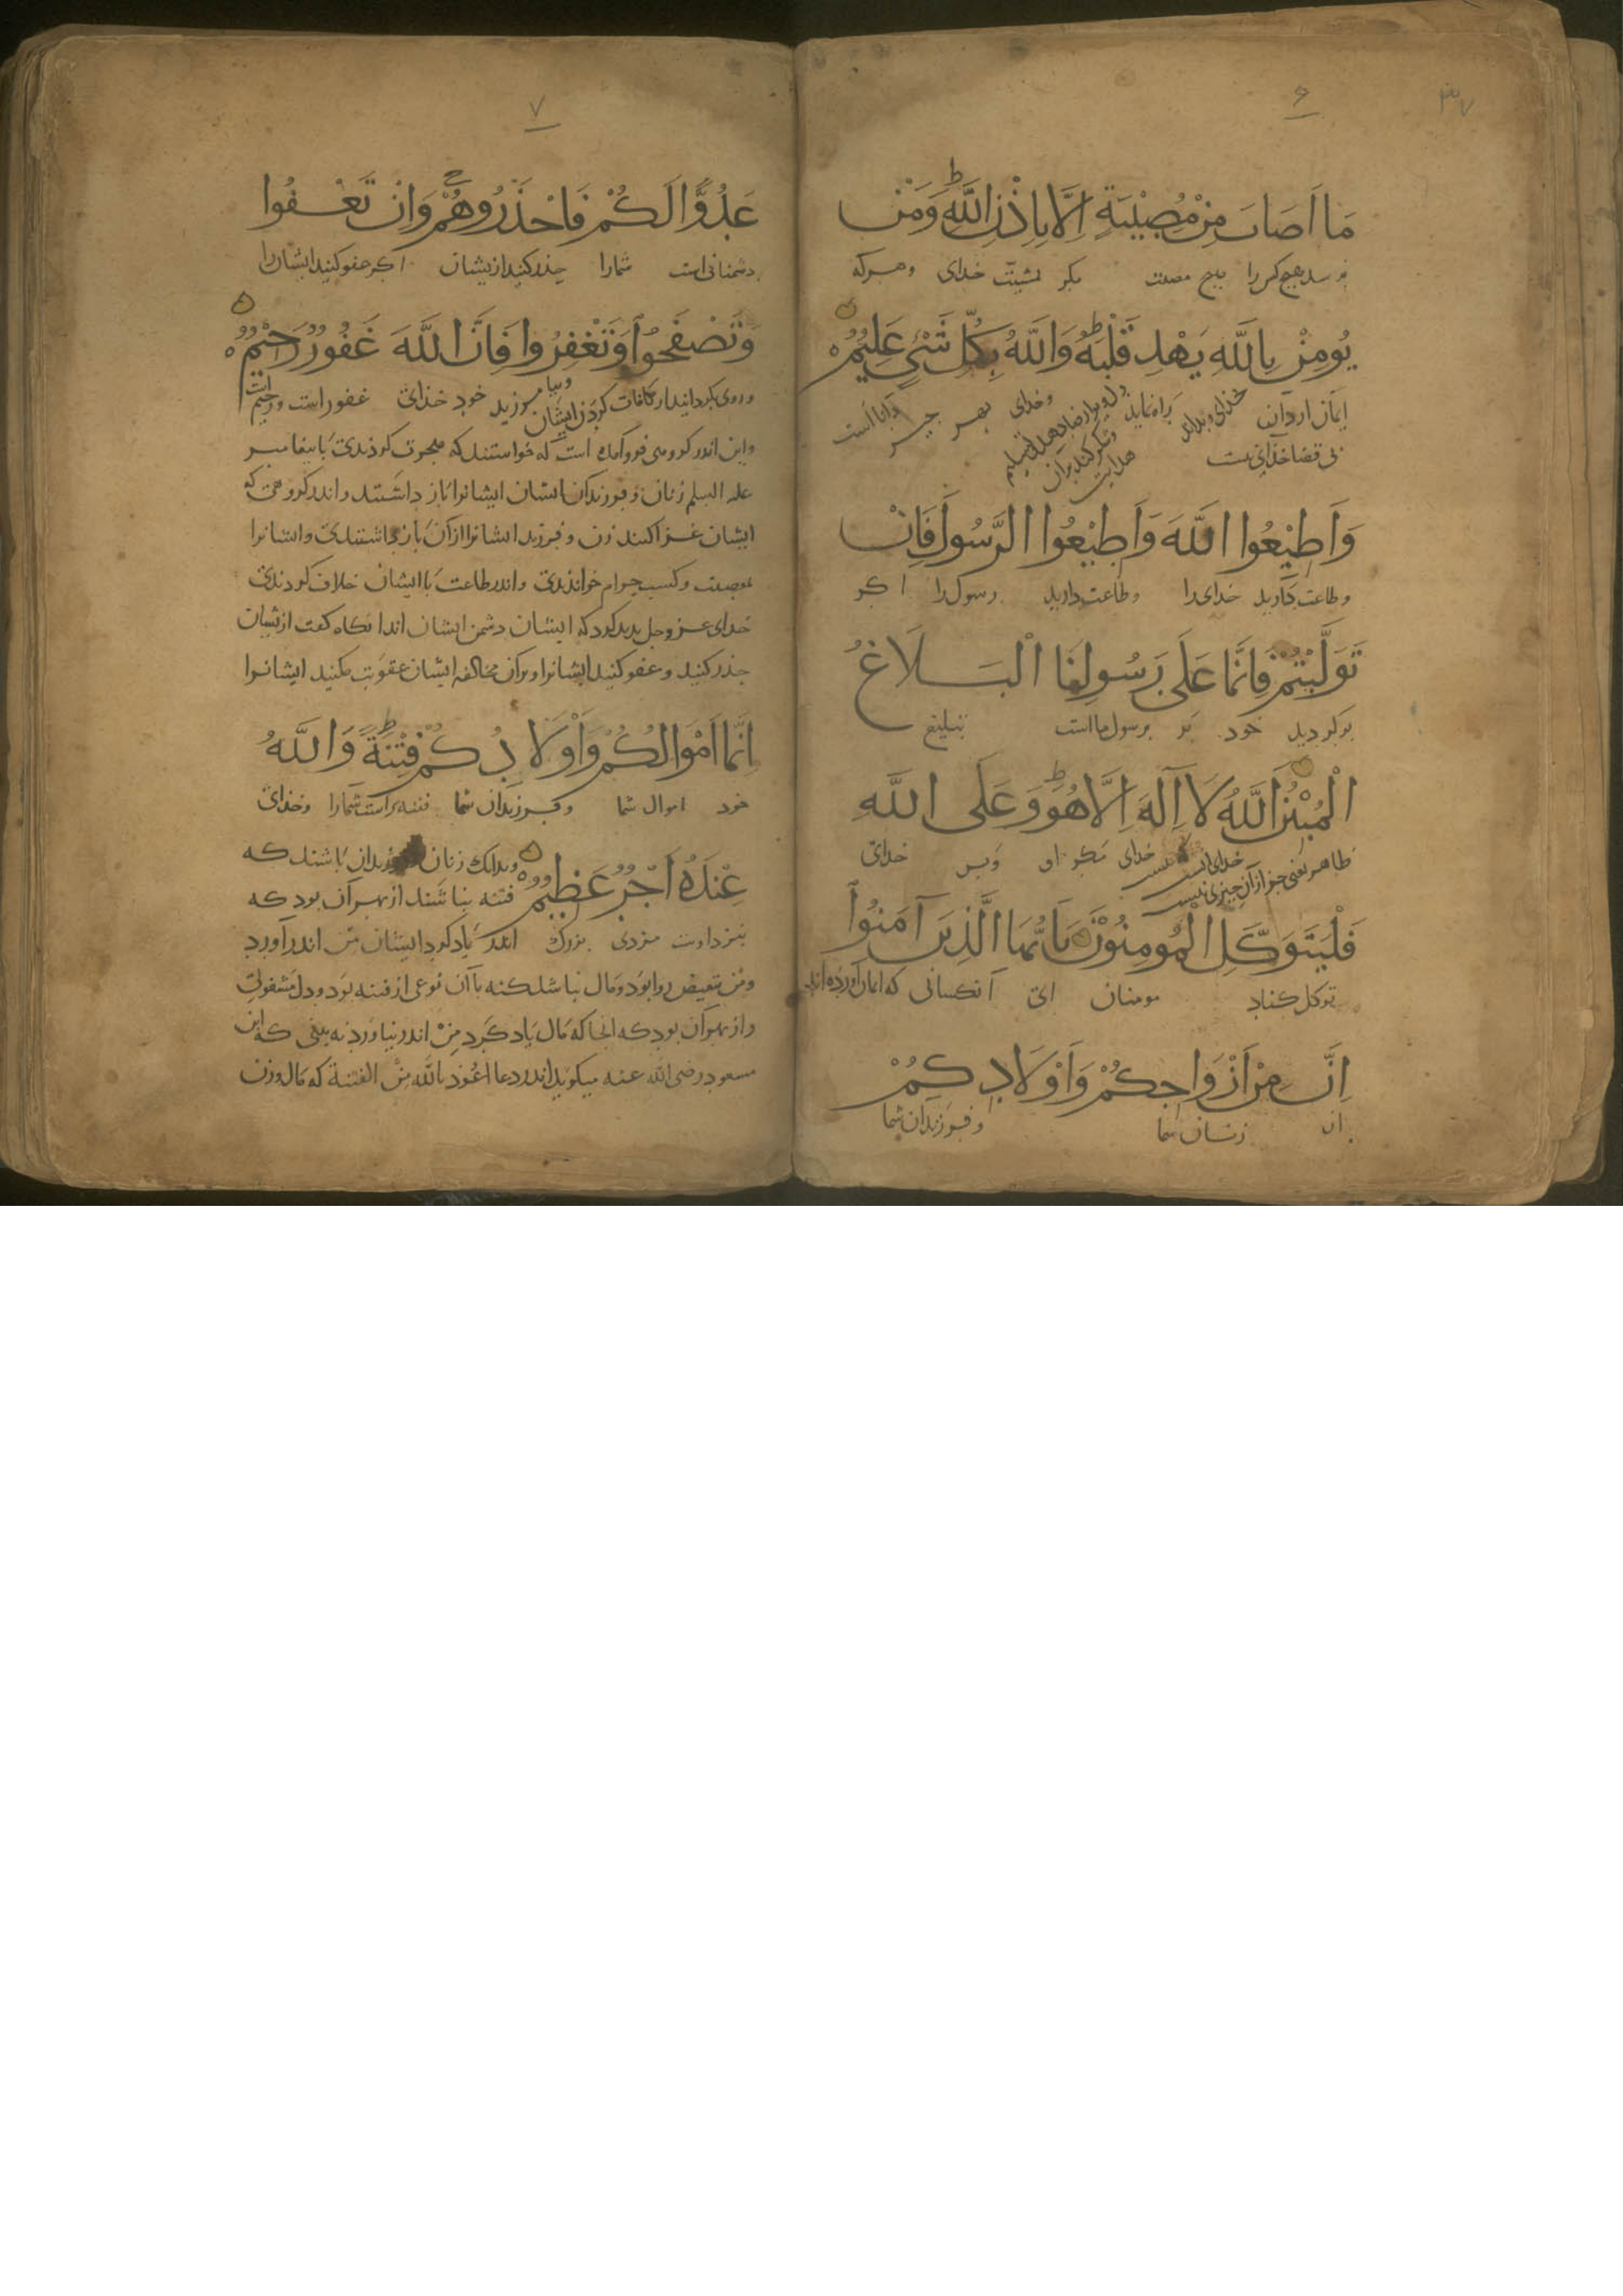 ۳۷
۶
مَا اَصَابَ مِنْ مُصِيْبَةٍ اِلَّا بِاِذْنِ اللَّهِ ط وَمَنْ
نرسد هیچ کس را هیچ مصیبت مکر بمشیت خدای وهرکه
يُومِنْ بِاللَّهِ يَهْدِ قَلْبَهُ ط وَاللَّهُ بِكُلِّ شَيْءٍ عَلِيْمٌ ه
ایمان اردان خدای وبداند راه نماید وخدای بهر چیز دانا است
وَاَطِيْعُوا اللَّهَ وَاَطِيْعُوا الرَّسُولَ فَاِنْ
وطاعت دارید خدای را وطاعت دارید رسول را اکر
تَوَلَّيْتُمْ فَاِنَّمَا عَلَى رَسُولِنَا الْبَلَاغُ
برکردید خود بر رسول ما است تبلیغ
الْمُبِيْنُ اَللَّهُ لَا اِلَهَ اِلَّا هُوَ ط وَعَلَى اللَّهِ
ظاهر یعنی جز از آن چیزی نیست خدای مکر او وبس خدای
فَلْيَتَوَكَّلِ الْمُومِنُوْنَ يَا اَيُّهَا الَّذِيْنَ آمَنُوْا
توکل کناد مومنان ای آنکسانی که ایمان آورده اند
اِنَّ مِنْ اَزْوَاجِكُمْ وَاَوْلَادِكُمْ
از زنان شما وفرزندان شما
۷
عَدُوًّا لَكُمْ فَاحْذَرُوهُمْ ج وَاِنْ تَعْفُوا
دشمنانی است شمارا حذر کنید ازیشان اکر عفو کنید ایشان را
وَتَصْفَحُوْا وَتَغْفِرُوا فَاِنَّ اللَّهَ غَفُوْرٌ رَحِيْمٌ ه
وروی بکردانید از مکافات کردن ایشان وبیامرزید خود خدای غفور است ورحیم است
واین اندر کروهی فرو آمده است که خواستند که هجرت کردندی با پیغامبر
علیه السلم زنان وفرزندان ایشان ایشانرا باز داشتند واندر کروهی که
ایشان غزا کنند زن وفرزند ایشانرا از آن باز داشتندی وایشانرا
بمعصیت وکسب حرام خواندندی واندر طاعت با ایشان خلاف کردندی
خدای عز وجل پدید کرد که ایشان دشمن ایشان اند انکاه کفت ازیشان
حذر کنید وعفو کنید ایشانرا وبران مخالفه ایشان عقوبت مکنید ایشانرا
اِنَّمَا اَمْوَالُكُمْ وَاَوْلَادُكُمْ فِتْنَةٌ ط وَاللَّهُ
خود اموال شما وفرزندان شما فتنه است شمارا وخدای
عِنْدَهُ اَجْرٌ عَظِيْمٌ ه وبدانک زنان وفرزندان باشند که
فتنه نباشند از بهر آن بود که
بنزد اوست مزدی بزرک اندر یاد کرد ایشان من اندر آورد
ومن تبعیض را بود ومال نباشد که نه با آن نوعی از فتنه بود ودل مشغولی
واز بهر آن بود که انجا که مال یاد کرد من اندر نیاورد نه بینی که ابن
مسعود رضی الله عنه میکوید اندر دعا اعوذ بالله من الفتنة که مال وزن